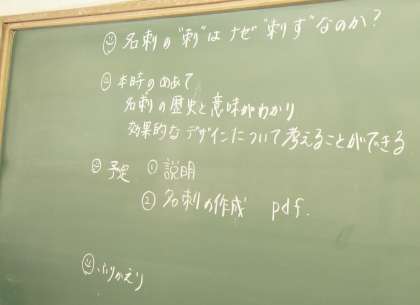 名刺の"刺"はナゼ"刺す"なのか?
本時のめあて
名刺の歴史と意味がわかり
効果的なデザインについて考えることができる
予定 ① 説明
② 名刺の作成 pdf.
ふりかえり